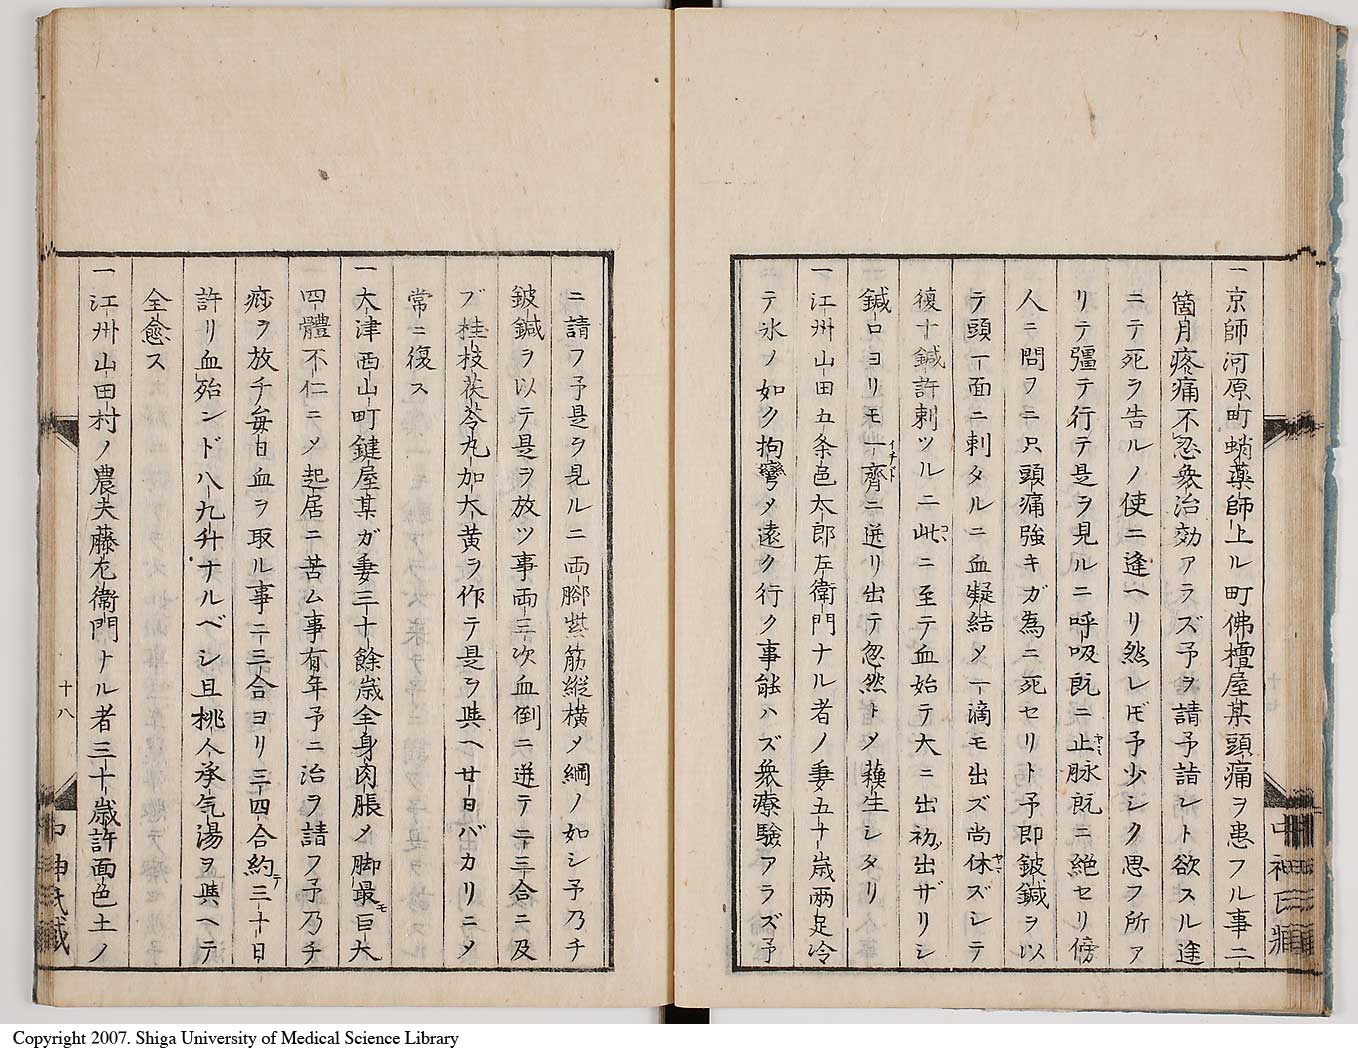 一京師河原町蛸藥師上ル町佛檀屋某頭痛ヲ患フル事二
箇月疼痛不忍衆治効アラズ予ヲ請予詣レト欲スル途
ニテ死ヲ告ルノ使ニ逢ヘリ然レ𪜈予少シク思フ所ア
リテ彊テ行テ是ヲ見ルニ呼吸既ニ止脉既ニ絶セリ傍
人ニ問フニ只頭痛強キガ為ニ死セリト予即鈹鍼ヲ以
テ頭一面ニ刺タルニ血凝結メ一滴モ出ズ尚休ズシテ
復十鍼許刺ツルニ此ニ至テ血始テ大ニ出初出ザリシ
鍼口ヨリモ一齊ニ迸リ出テ忽然トメ蘓生シタリ
一江州山田五条邑太郎左衛門ナル者ノ妻五十歳兩足冷
テ氷ノ如ク拘攣メ遠ク行ク事能ハズ衆療驗アラズ予
ニ請フ予是ヲ見ルニ両脚紫筋縦横メ綱ノ如シ予乃チ
鈹鍼ヲ以テ是ヲ放ツ事両三次血倒ニ迸テ二三合ニ及
ブ桂枝茯苓丸加大黄ヲ作テ是ヲ與ヘ廿日バカリニメ
常ニ復ス
一大津西山町鍵屋某ガ妻三十餘歳全身肉脹メ脚最巨大
四體不仁ニメ起居ニ苦ム事有年予ニ治ヲ請フ予乃チ
痧ヲ放チ毎日血ヲ取ル事二三合ヨリ三四合約三十日
許リ血殆ンド八九升ナルベシ且桃人承气湯ヲ與ヘテ
全愈ス
一江州山田村ノ農夫藤左衛門ナル者三十歳許面色土ノ
十八
中神氏藏
中神氏藏
Copyright 2007. Shiga University of Medical Science Library